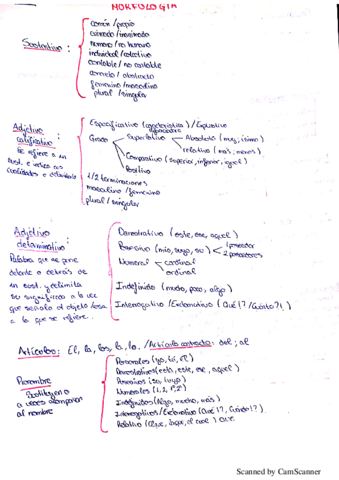 MORFOLOGÍA
común / propio
animado / inanimado
humano / no humano
Sustantivo :
individual / colectivo
contable / no contable
concreto / abstracto
femenino / masculino
plural / singular
Especificativo (característica) / Explicativo
Adjetivo calificativo :
Grado
Superlativo
Absoluto (muy, ísimo)
relativo (más, menos)
Se refiere a un
sust. e indica sus
cualidades o
Comparativo (superior, inferior, igual)
Positivo
1/2 terminaciones
masculino / femenino
plural / singular
Adjetivo determinativo :
Demostrativo (este, ese, aquel)
Posesivo (mío, suyo, su)
1 poseedor
2 poseedores
Palabra que se pone
delante o detrás de
un sust. y delimita
su significado a la vez
que señala el objeto
a lo que se refiere.
Numeral
cardinal
ordinal
Indefinido (mucho, poco, algo)
Interrogativo / Exclamativo (Qué!? / Cuánto?!)
Artículos : El, la, los, las, lo. / Artículo contracto : del ; al
Pronombre
Sustituyen o
a veces acompañan
al nombre
Personales (yo, tú, él)
Demostrativos (esta, este, ese, aquel)
Posesivos (su, tuyo)
Numerales
Indefinidos (Algo, mucho, más)
Interrogativos / Exclamativo (Qué!?, Cuándo!?)
Relativo (Que, el cual) que
Scanned by CamScanner